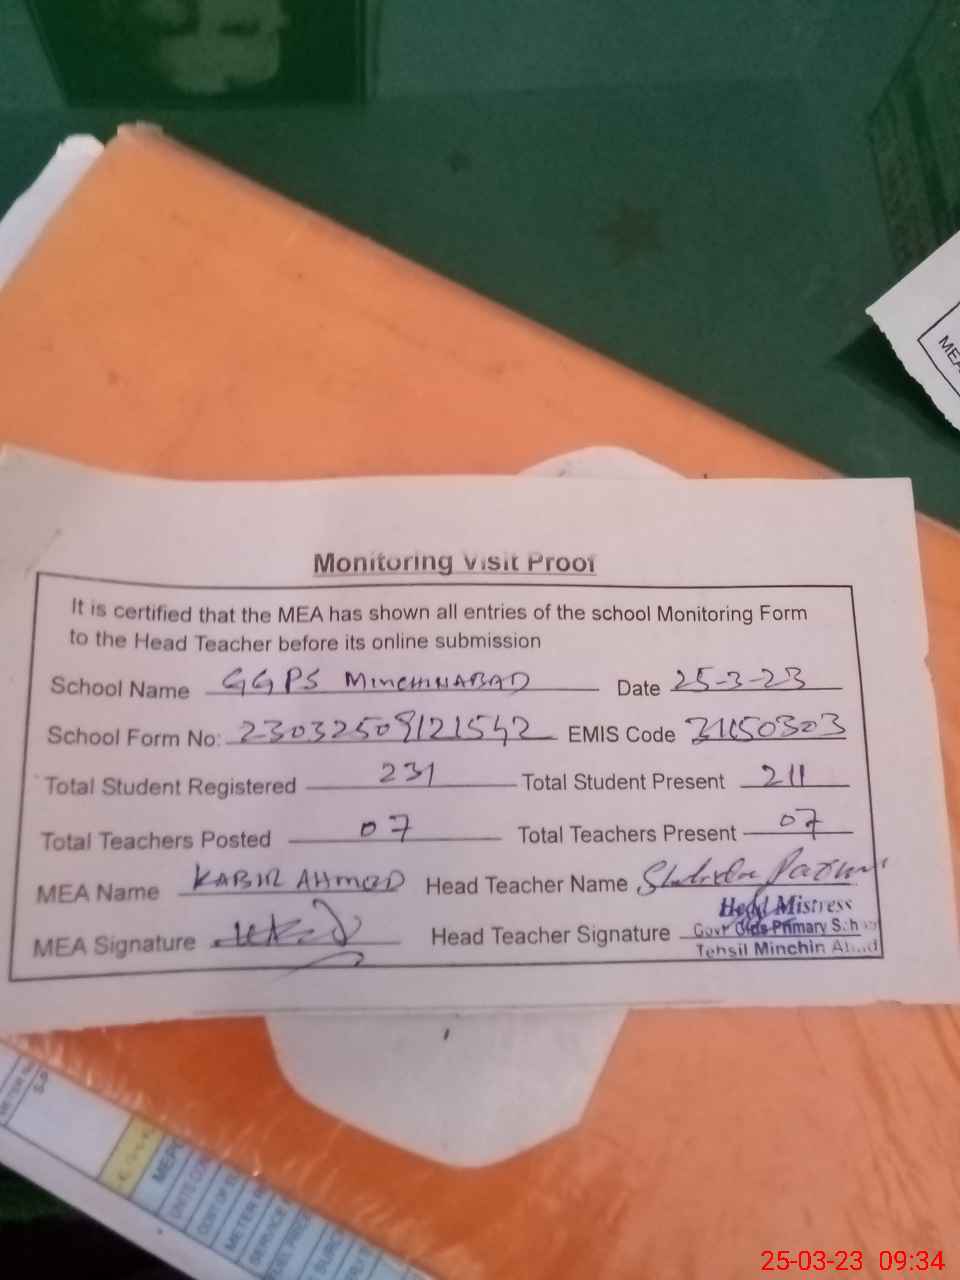 Monitoring Visit Proof
It is certified that the MEA has shown all entries of the school Monitoring Form
to the Head Teacher before its online submission
School Name GGPS MINCHINABAD Date 25-3-23
School Form No: 23032509121542 EMIS Code 31150303
Total Student Registered 231 Total Student Present 211
Total Teachers Posted 07 Total Teachers Present 07
MEA Name KABIR AHMAD Head Teacher Name
Head Mistress
MEA Signature Head Teacher Signature Govt Girls Primary
Tehsil Minchin
MEA
METER
MEPC
25-03-23 09:34